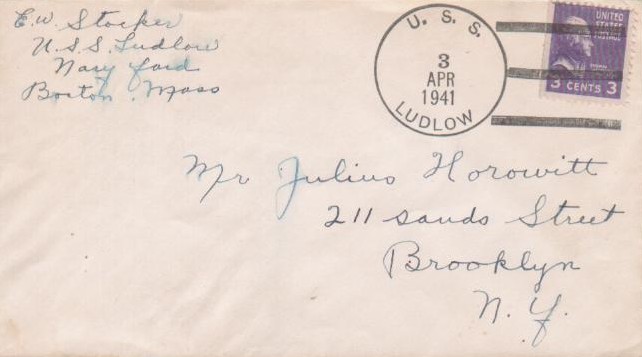 E. W. Stocker
U.S.S. Ludlow
Navy Yard
Boston, Mass
U. S. S.
3
APR
1941
LUDLOW
UNITED
STATES
POSTAGE
3 CENTS 3
Mr Julius Horowitt
211 Sands Street
Brooklyn
N. Y.